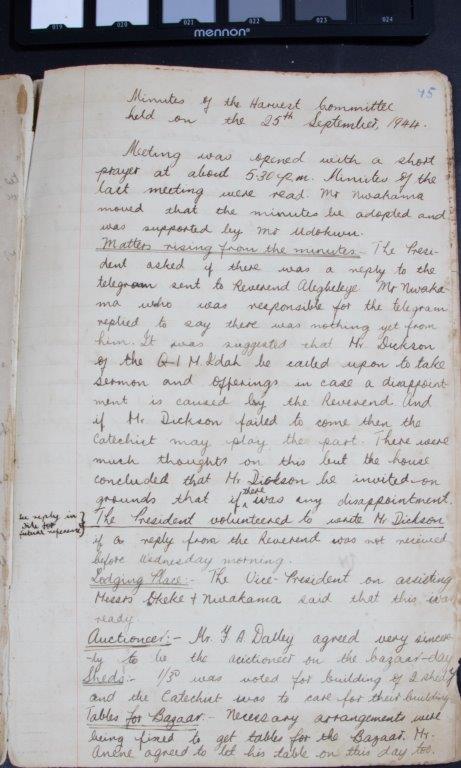 019 020 021 022 023 024
mennon®
45
Minutes of the Harvest Committee
held on the 25th September, 1944.
Meeting was opened with a short
prayer at about 5.30 p.m. Minutes of the
last meeting were read. Mr Nwakama
moved that the minutes be adopted and
was supported by Mr Udokwu.
Matters rising from the minutes:- The Presi-
dent asked if there was a reply to the
telegram sent to Reverend Alegbeleye. Mr Nwaka-
ma who was responsible for the telegram
replied to say there was nothing yet from
him. It was suggested that Mr. Dickson
of the Q I M. Idah be called upon to take
Sermon and Offerings in case a disappoint-
ment is caused by the Reverend. And
if Mr. Dickson failed to come then the
Catechist may play the part. There were
much thoughts on this but the house
concluded that Mr Dickson be invited on
grounds that if there was any disappointment.
The President volunteered to wrote Mr Dickson
if a reply from the Reverend was not received
before Wednesday morning.
see reply in
file for
future reference
Lodging Place:- The Vice-President on assisting
Messrs Okeke & Nwakama said that this was
ready.
Auctioneer:- Mr. F. A. Dalley agreed very sincere-
-ly to be the auctioneer on the bazaar-day
Sheds:- was voted for building of 2 sheds
and the Catechist was to care for their building
Tables for Bazaar:- Necessary arrangements were
being fixed to get tables for the Bazaar. Mr.
Anene agreed to let his table on this day too.